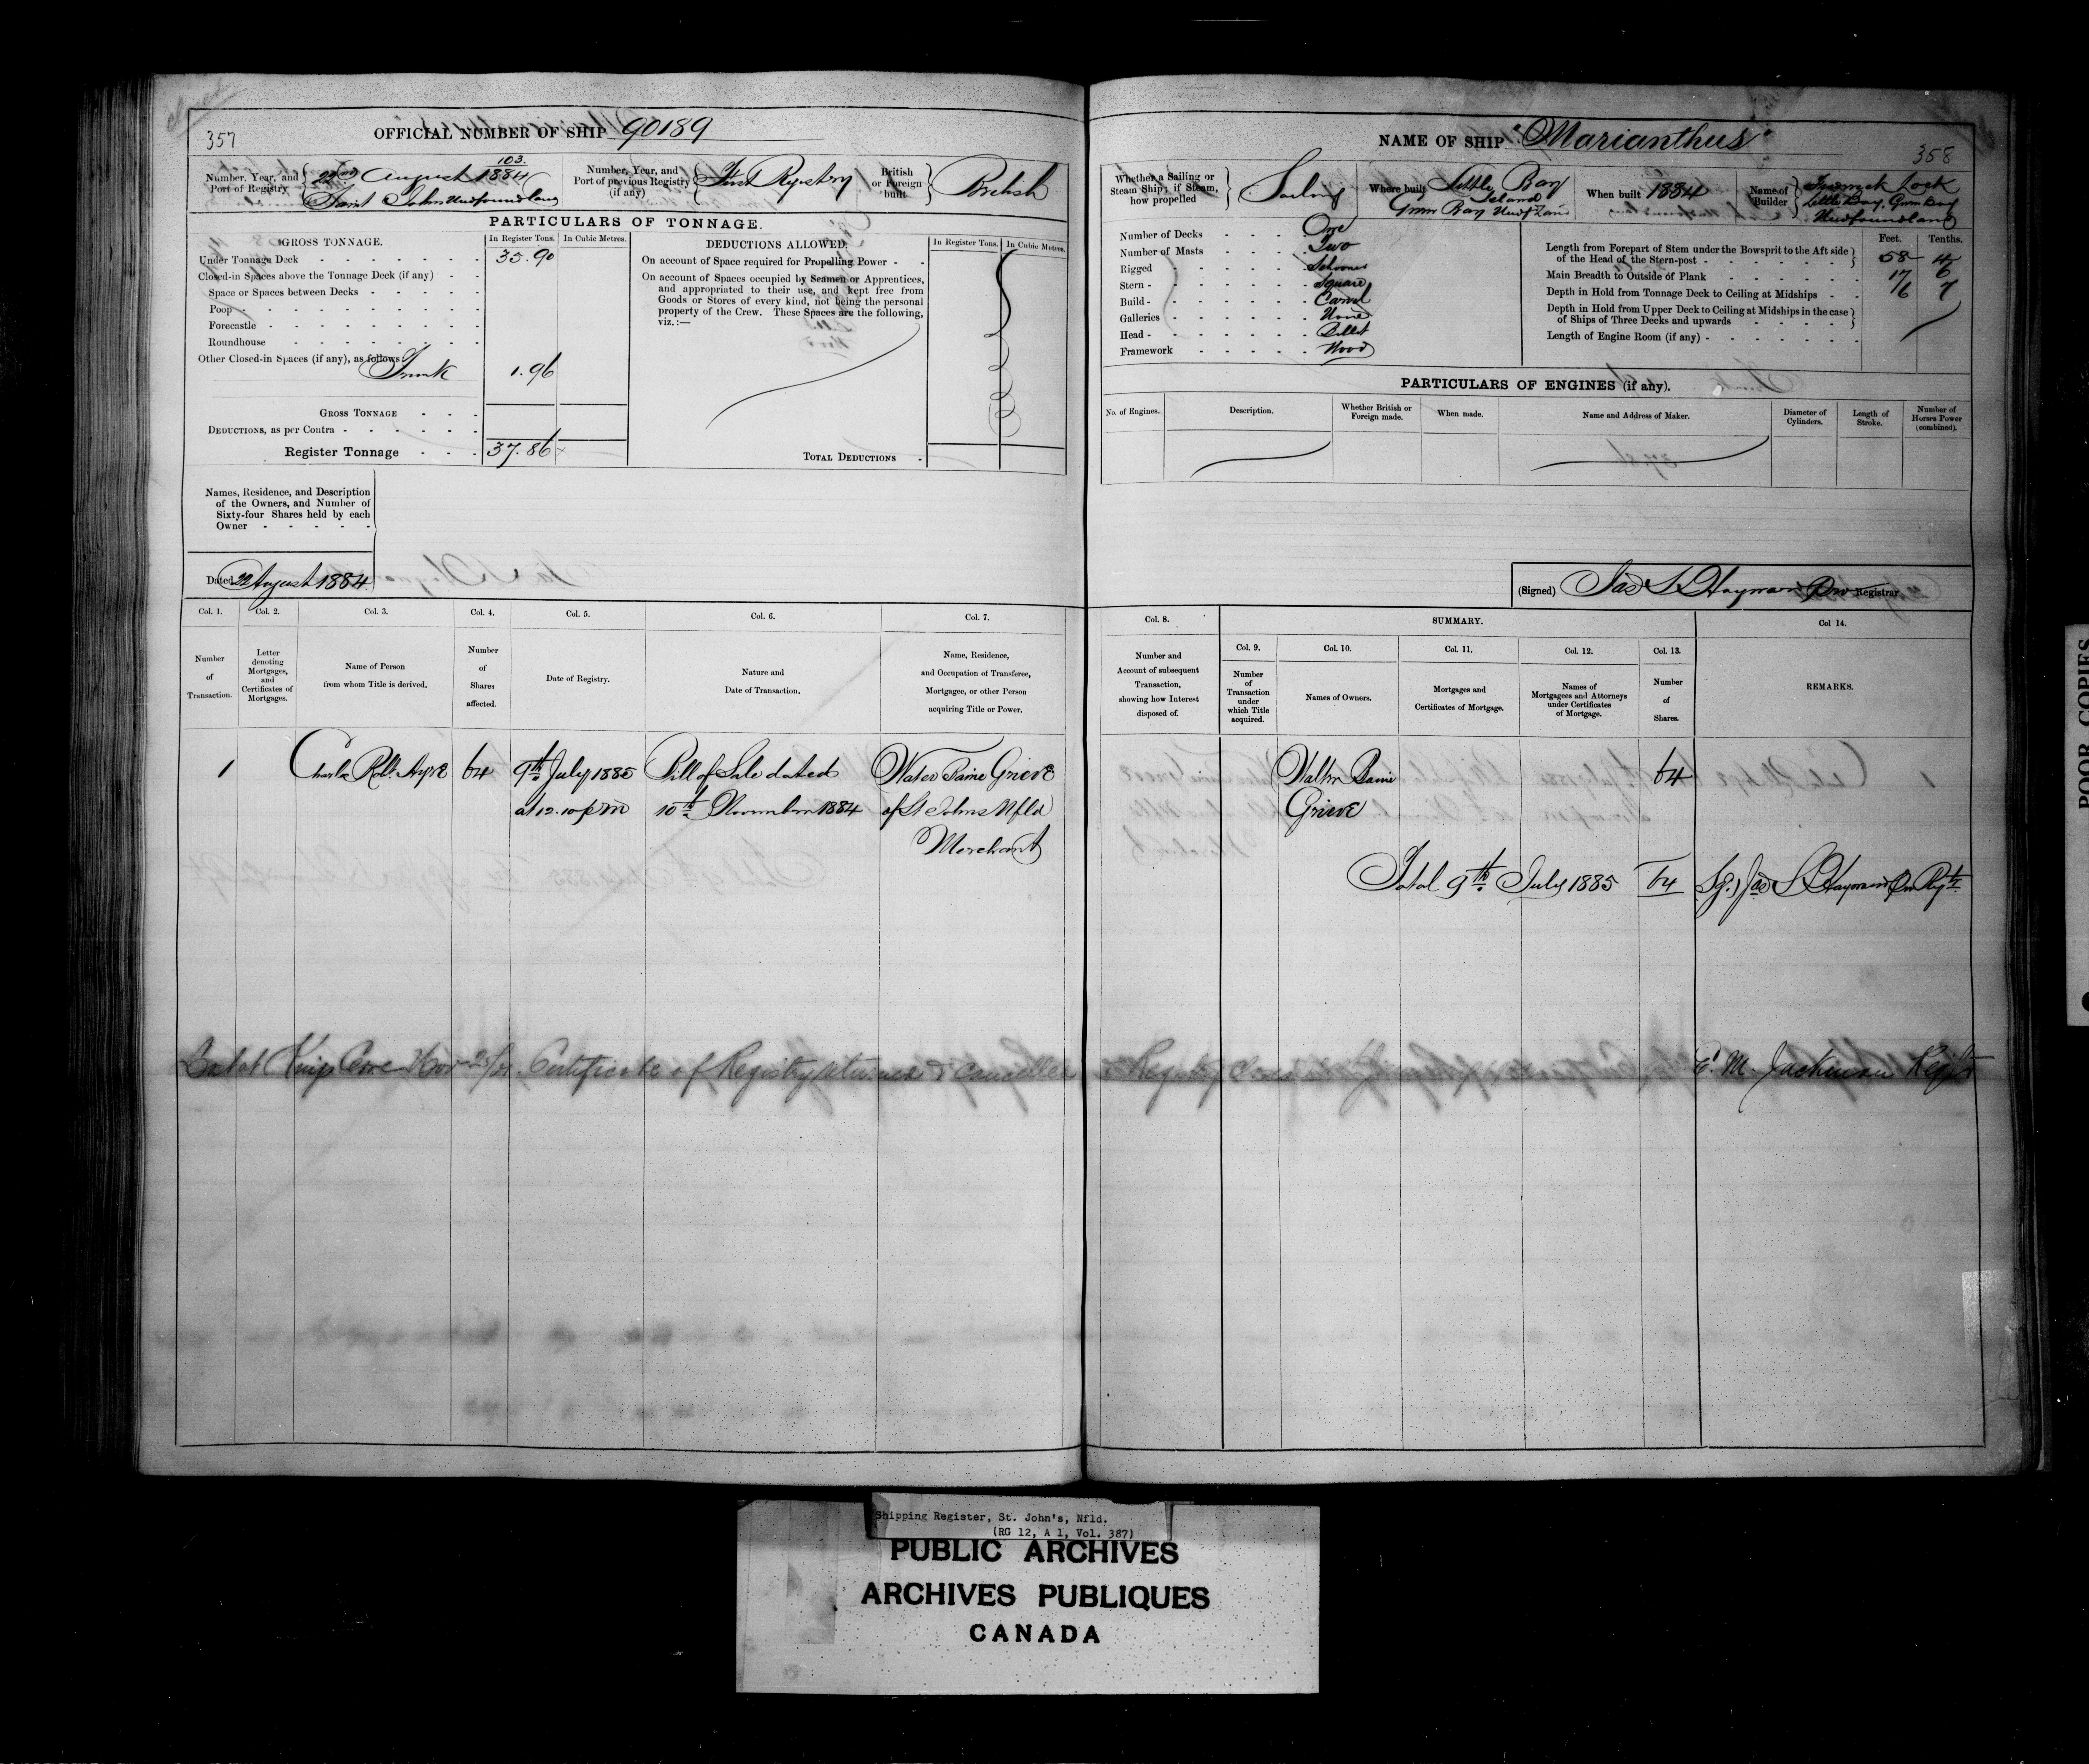 closed
357
OFFICIAL NUMBER OF SHIP 90189
Number, Year, and Port of Registry { 103. 22nd August 1884 Saint Johns Newfoundland
Number, Year, and Port of previous Registry (if any) { First Registry
British or Foreign built. } British
PARTICULARS OF TONNAGE.
GROSS TONNAGE. In Register Tons. In Cubic Metres.
Under Tonnage Deck - - - 35.90
Closed-in Spaces above the Tonnage Deck (if any) - -
Space or Spaces between Decks - - - - -
Poop - - - - - - -
Forecastle - - - - - - -
Roundhouse - - - - - -
Other Closed-in Spaces (if any), as follows
Trunk 1.96
GROSS TONNAGE - - -
DEDUCTIONS, as per Contra - - - - - -
Register Tonnage - - - 37.86
DEDUCTIONS ALLOWED. In Register Tons. In Cubic Metres.
On account of Space required for Propelling Power - -
On account of Spaces occupied by Seamen or Apprentices,
and appropriated to their use, and kept free from
Goods or Stores of every kind, not being the personal
property of the Crew. These Spaces are the following,
viz.:—
TOTAL DEDUCTIONS -
Names, Residence, and Description
of the Owners, and Number of
Sixty-four Shares held by each
Owner - - - - -
Dated 22 August 1884
Col. 1. Col. 2. Col. 3. Col. 4. Col. 5. Col. 6. Col. 7.
Number of Transaction.
Letter denoting Mortgages, and Certificates of Mortgages.
Name of Person from whom Title is derived.
Number of Shares affected.
Date of Registry.
Nature and Date of Transaction.
Name, Residence, and Occupation of Transferee, Mortgagee, or other Person acquiring Title or Power.
1 Charles Robt. Ayre 64 9th July 1885 Bill of Sale dated Walter Baine Grieve
at 12.10 pm 10th November 1884 of St Johns Nfld
Merchant
NAME OF SHIP "Marianthus"
358
Whether a Sailing or Steam Ship; if Steam, how propelled } Sailing
Where built Little Bay Island Green Bay
When built 1884
Name of Builder } Lock Little Bay, Green Bay Newfoundland
Number of Decks - - - One
Number of Masts - - - Two
Rigged - - - - - Schooner
Stern - - - - - - Square
Build - - - - - - Carvel
Galleries - - - - - None
Head - - - - - - Billet
Framework - - - - - Wood
Feet. Tenths.
Length from Forepart of Stem under the Bowsprit to the Aft side
of the Head of the Stern-post - - - - - } 58 4
Main Breadth to Outside of Plank - - - - - 17 6
Depth in Hold from Tonnage Deck to Ceiling at Midships - - 6 7
Depth in Hold from Upper Deck to Ceiling at Midships in the case
of Ships of Three Decks and upwards - - - - - }
Length of Engine Room (if any) - - - - - -
PARTICULARS OF ENGINES (if any).
No. of Engines. Description. Whether British or Foreign made. When made. Name and Address of Maker. Diameter of Cylinders. Length of Stroke. Number of Horses Power (combined).
(Signed) Jas S Hayward Registrar
Col. 8. SUMMARY. Col 14.
Col. 9. Col. 10. Col. 11. Col. 12. Col. 13.
Number and Account of subsequent Transaction, showing how Interest disposed of.
Number of Transaction under which Title acquired.
Names of Owners.
Mortgages and Certificates of Mortgage.
Names of Mortgagees and Attorneys under Certificates of Mortgage.
Number of Shares.
REMARKS.
Walter Baine 64
Grieve
Total 9th July 1885 64 Sg.) Jas S Hayward
Lost at Kings Cove Nov Certificate of Registry returned & cancelled & Registry closed M. Jackman Regtr
POOR COPIES
Shipping Register, St. John's, Nfld.
(RG 12, A 1, Vol. 387)
PUBLIC ARCHIVES
ARCHIVES PUBLIQUES
CANADA